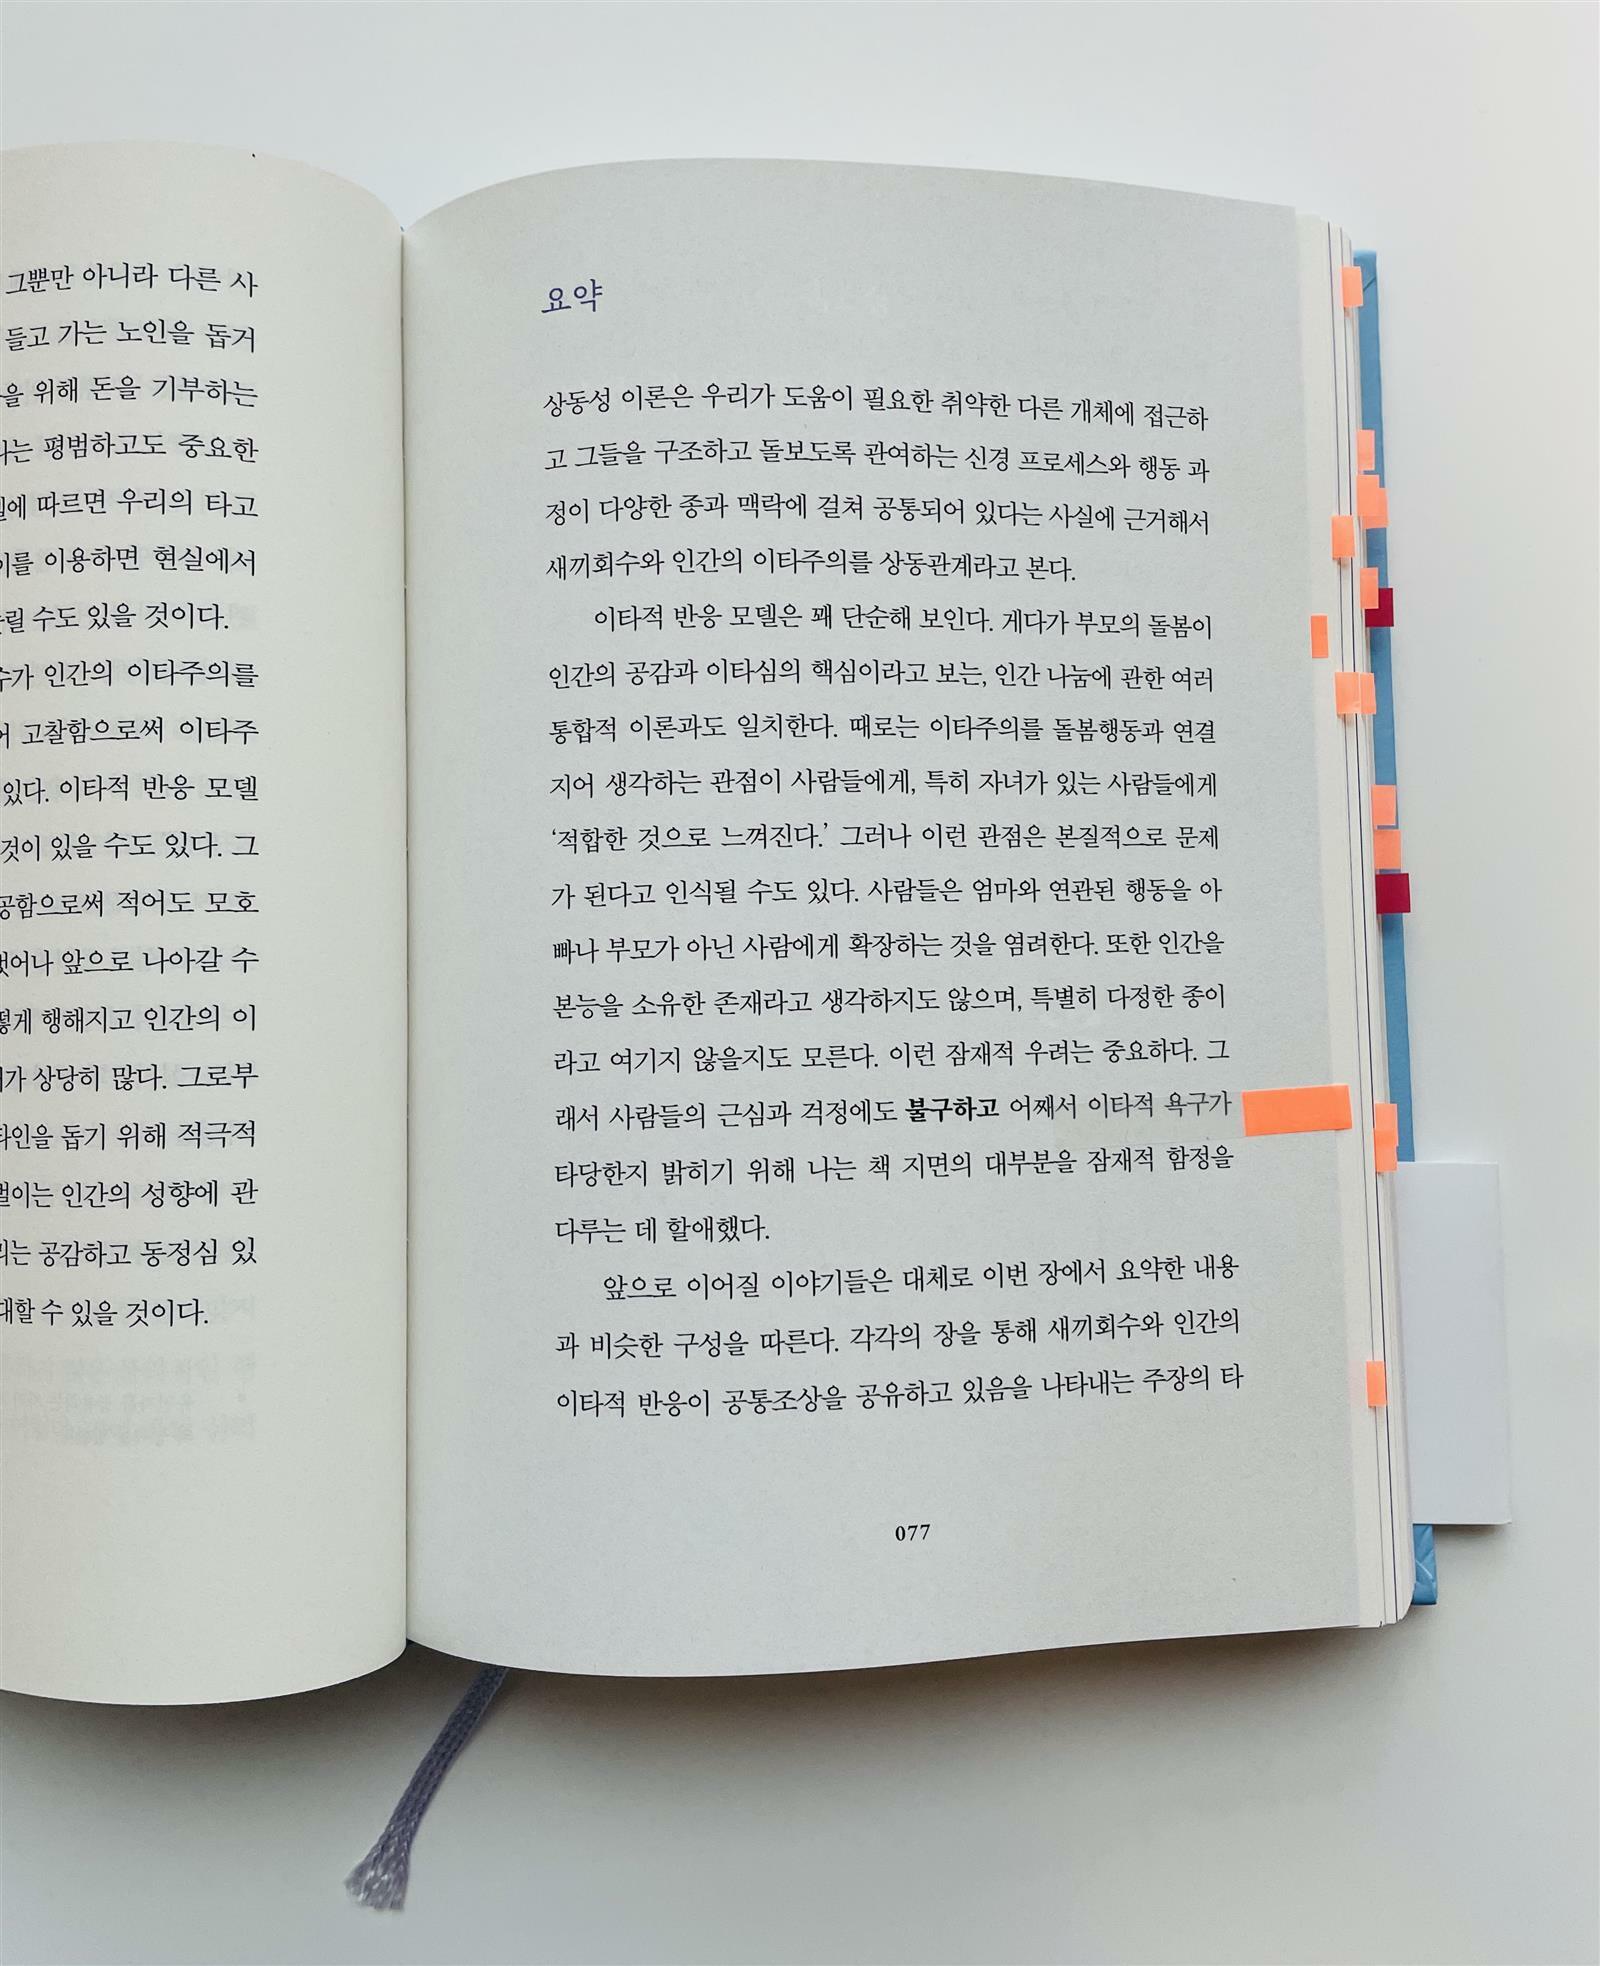 그뿐만 아니라 다른 사
들고 가는 노인을 돕거
을 위해 돈을 기부하는
평범하고도 중요한
따르면 우리의 타고
이용하면 현실에서
수도 있을 것이다.
인간의 이타주의를
고찰함으로써 이타주
있다. 이타적 반응 모델
것이 있을 수도 있다. 그
적어도 모호
앞으로 나아갈 수
행해지고 인간의 이
상당히 많다. 그로부
돕기 위해 적극적
인간의 성향에 관
공감하고 동정심 있
수 있을 것이다.
요약
상동성 이론은 우리가 도움이 필요한 취약한 다른 개체에 접근하
고 그들을 구조하고 돌보도록 관여하는 신경 프로세스와 행동 과
정이 다양한 종과 맥락에 걸쳐 공통되어 있다는 사실에 근거해서
새끼회수와 인간의 이타주의를 상동관계라고 본다.
이타적 반응 모델은 꽤 단순해 보인다. 게다가 부모의 돌봄이
인간의 공감과 이타심의 핵심이라고 보는, 인간 나눔에 관한 여러
통합적 이론과도 일치한다. 때로는 이타주의를 돌봄행동과 연결
지어 생각하는 관점이 사람들에게, 특히 자녀가 있는 사람들에게
‘적합한 것으로 느껴진다.’ 그러나 이런 관점은 본질적으로 문제
가 된다고 인식될 수도 있다. 사람들은 엄마와 연관된 행동을 아
빠나 부모가 아닌 사람에게 확장하는 것을 염려한다. 또한 인간을
본능을 소유한 존재라고 생각하지도 않으며, 특별히 다정한 종이
라고 여기지 않을지도 모른다. 이런 잠재적 우려는 중요하다. 그
래서 사람들의 근심과 걱정에도 불구하고 어째서 이타적 욕구가
타당한지 밝히기 위해 나는 책 지면의 대부분을 잠재적 함정을
다루는 데 할애했다.
앞으로 이어질 이야기들은 대체로 이번 장에서 요약한 내용
과 비슷한 구성을 따른다. 각각의 장을 통해 새끼회수와 인간의
이타적 반응이 공통조상을 공유하고 있음을 나타내는 주장의 타
077